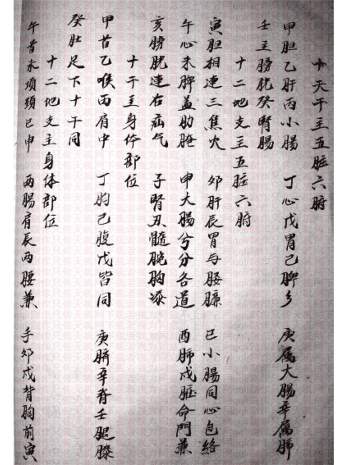 十天干主五脏六腑
甲胆乙肝丙小腸 丁心戊胃己脾乡 庚属大腸辛属肺
壬主膀胱癸腎腸
十二地支主五脏六腑
寅胆相連三焦火 卯肝辰胃与腰膝 巳小腸同心包絡
午心未脾並肋胞 申大腸兮分各道 酉肺戌脏命門兼
亥膀胱連右疝气 子腎丑髓脆胸
十干主身体部位
甲首乙喉丙肩中 丁胸己腹戊皆同 庚脐辛脊壬腿膝
癸肚足下十干同
十二地支主身体部位
午首未頭頸巳申 两腸肩辰两腰兼 手卯戌背胸前寅